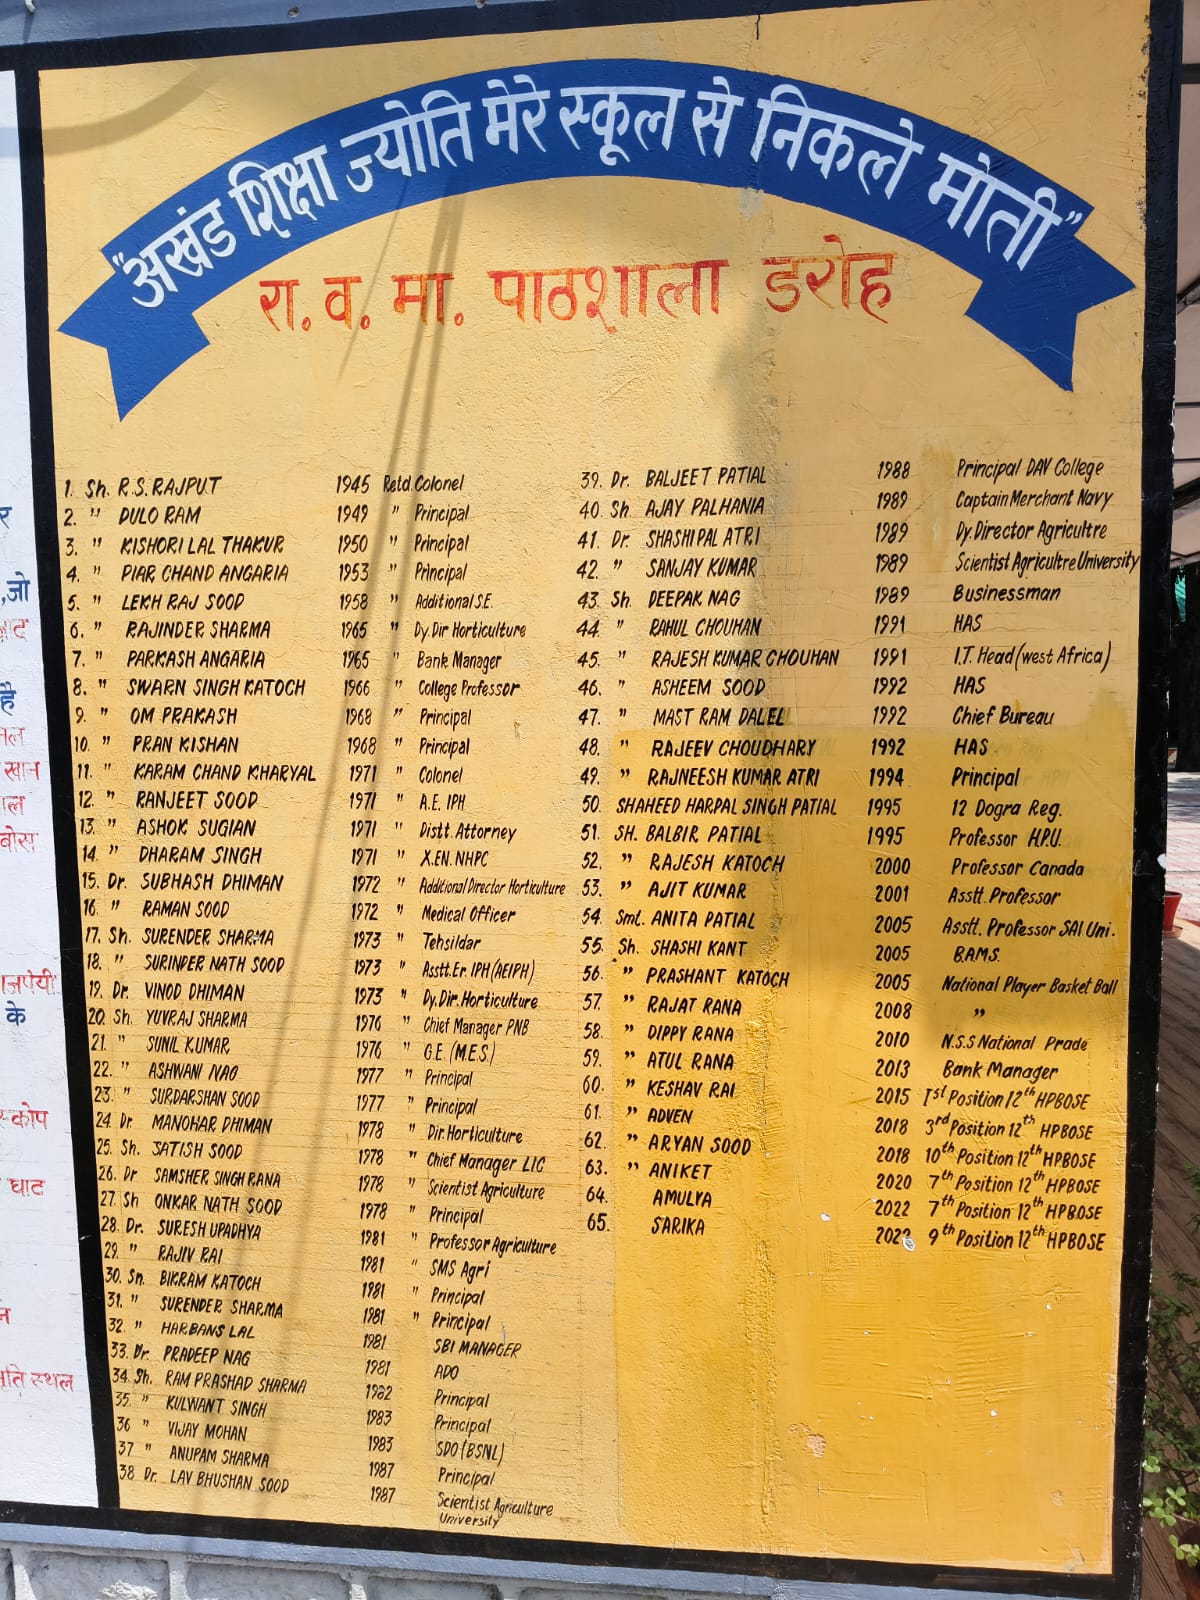 "अखंड शिक्षा ज्योति मेरे स्कूल से निकले मोती"
रा. व. मा. पाठशाला डरोह
1. Sh. R.S. RAJPUT 1945 Retd. Colonel
2. " DULO RAM 1949 " Principal
3. " KISHORI LAL THAKUR 1950 " Principal
4. " PIAR CHAND ANGARIA 1953 " Principal
5. " LEKH RAJ SOOD 1958 " Additional S.E.
6. " RAJINDER SHARMA 1965 " Dy. Dir Horticulture
7. " PARKASH ANGARIA 1965 " Bank Manager
8. " SWARN SINGH KATOCH 1966 " College Professor
9. " OM PRAKASH 1968 " Principal
10. " PRAN KISHAN 1968 " Principal
11. " KARAM CHAND KHARYAL 1971 " Colonel
12. " RANJEET SOOD 1971 " A.E. IPH
13. " ASHOK SUGIAN 1971 " Distt. Attorney
14. " DHARAM SINGH 1971 " X.EN. NHPC
15. Dr. SUBHASH DHIMAN 1972 " Additional Director Horticulture
16. " RAMAN SOOD 1972 " Medical Officer
17. Sh. SURENDER SHARMA 1973 " Tehsildar
18. " SURINDER NATH SOOD 1973 " Asstt. Er. IPH (AEIPH)
19. Dr. VINOD DHIMAN 1973 " Dy. Dir. Horticulture
20. Sh. YUVRAJ SHARMA 1976 " Chief Manager PNB
21. " SUNIL KUMAR 1976 " G.E. (M.E.S.)
22. " ASHWANI NAG 1977 " Principal
23. " SURDARSHAN SOOD 1977 " Principal
24. Dr. MANOHAR DHIMAN 1978 " Dir. Horticulture
25. Sh. SATISH SOOD 1978 " Chief Manager LIC
26. Dr SAMSHER SINGH RANA 1978 " Scientist Agriculture
27. Sh ONKAR NATH SOOD 1978 " Principal
28. Dr. SURESH UPADHYA 1981 " Professor Agriculture
29. " RAJIV RAI 1981 " SMS Agri
30. Sh. BIKRAM KATOCH 1981 " Principal
31. " SURENDER SHARMA 1981 " Principal
32. " HARBANS LAL 1981 SBI MANAGER
33. Dr. PRADEEP NAG 1981 ADO
34. Sh. RAM PRASHAD SHARMA 1982 Principal
35. " KULWANT SINGH 1983 Principal
36 " VIJAY MOHAN 1983 SDO (BSNL)
37 " ANUPAM SHARMA 1987 Principal
38 Dr. LAV BHUSHAN SOOD 1987 Scientist Agriculture
University
39. Dr. BALJEET PATIAL 1988 Principal DAV College
40. Sh. AJAY PALHANIA 1989 Captain Merchant Navy
41. Dr. SHASHI PAL ATRI 1989 Dy. Director Agricultre
42. " SANJAY KUMAR 1989 Scientist Agricultre University
43. Sh. DEEPAK NAG 1989 Businessman
44. " RAHUL CHOUHAN 1991 HAS
45. " RAJESH KUMAR CHOUHAN 1991 I.T. Head (west Africa)
46. " ASHEEM SOOD 1992 HAS
47. " MAST RAM DALEL 1992 Chief Bureau
48. " RAJEEV CHOUDHARY 1992 HAS
49. " RAJNEESH KUMAR ATRI 1994 Principal
50. SHAHEED HARPAL SINGH PATIAL 1995 12 Dogra Reg.
51. SH. BALBIR PATIAL 1995 Professor H.P.U.
52. " RAJESH KATOCH 2000 Professor Canada
53. " AJIT KUMAR 2001 Asstt. Professor
54. Smt. ANITA PATIAL 2005 Asstt. Professor SAI Uni.
55. Sh. SHASHI KANT 2005 B.A.M.S.
56. " PRASHANT KATOCH 2005 National Player Basket Ball
57. " RAJAT RANA 2008 "
58. " DIPPY RANA 2010 N.S.S National Prade
59. " ATUL RANA 2013 Bank Manager
60. " KESHAV RAI 2015 1st Position 12th HPBOSE
61. " ADVEN 2018 3rd Position 12th HPBOSE
62. " ARYAN SOOD 2018 10th Position 12th HPBOSE
63. " ANIKET 2020 7th Position 12th HPBOSE
64. AMULYA 2022 7th Position 12th HPBOSE
65. SARIKA 2022 9th Position 12th HPBOSE
,जो
है
खान
बोस
के
घाट
स्थल